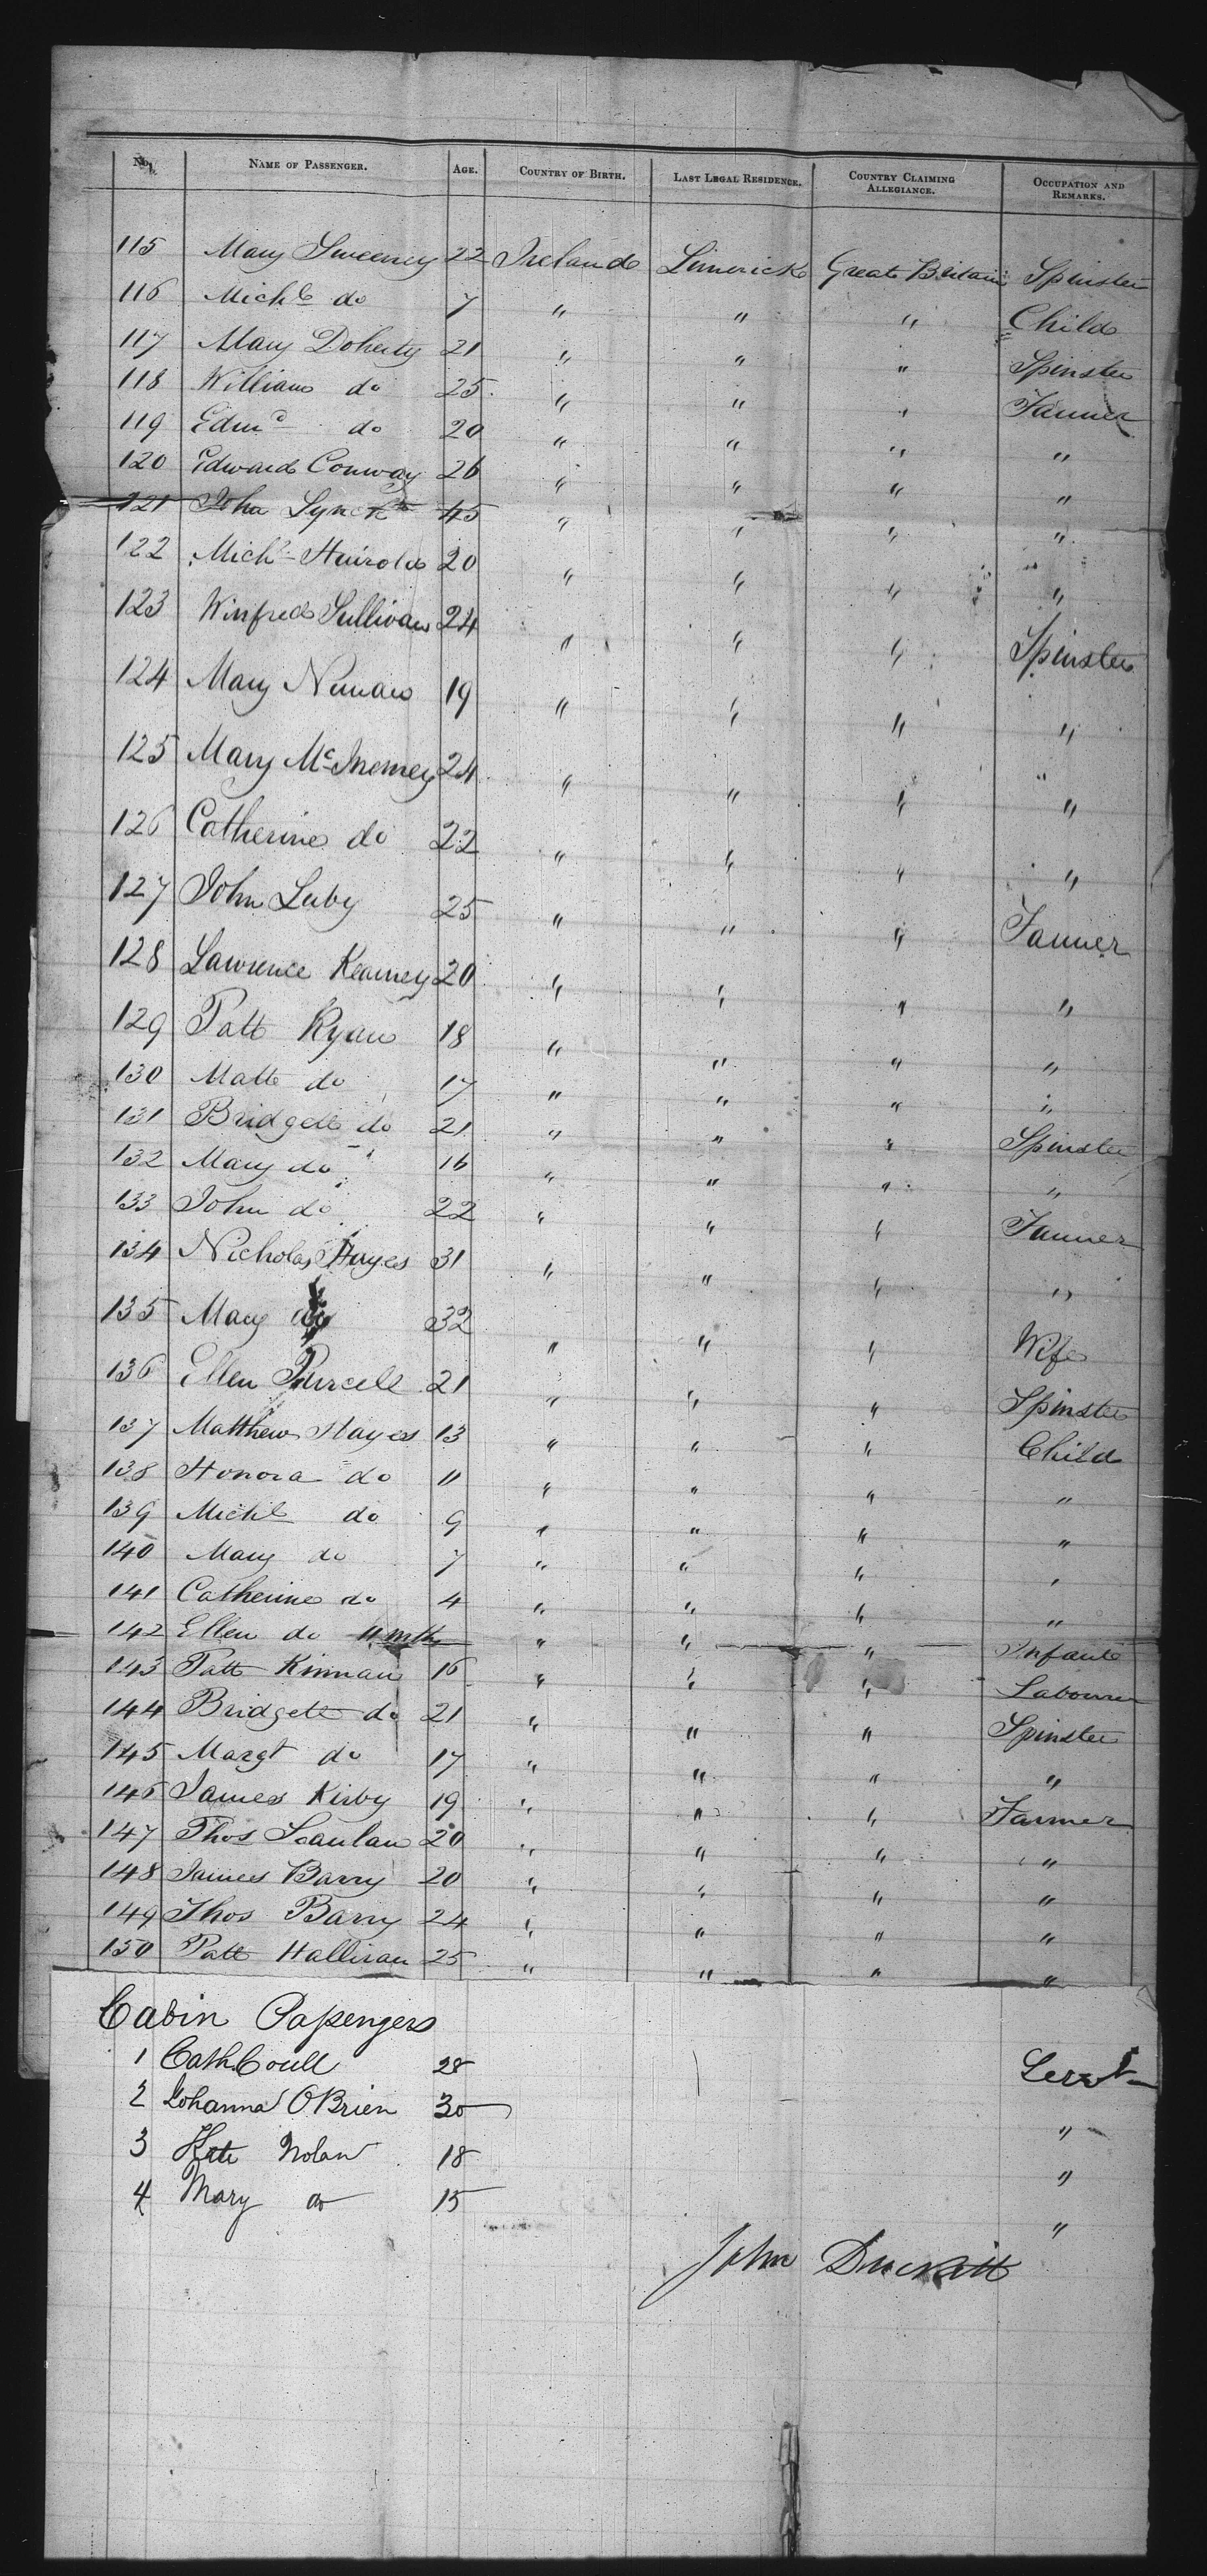 No. NAME OF PASSENGER. AGE. COUNTRY OF BIRTH. LAST LEGAL RESIDENCE. COUNTRY CLAIMING ALLEGIANCE. OCCUPATION AND REMARKS.
115 Mary Sweeney 22 Ireland Limerick Great Britain Spinster
116 Michl do 7 " " " Child
117 Mary Doherty 21 " " " Spinster
118 William do 25 " " " Farmer
119 Edmd do 20 " " " "
120 Edward Conway 26 " " " "
121 John Lynch 45 " " " "
122 Michl 20 " " " "
123 Winfred Sullivan 24 " " " Spinster
124 Mary Nunan 19 " " " "
125 Mary McInerney 24 " " " "
126 Catherine do 22 " " " "
127 John Luby 25 " " " Farmer
128 Lawrence Kearney 20 " " " "
129 Patt Ryan 18 " " " "
130 Matt do 17 " " " "
131 Bridget do 21 " " " Spinster
132 Mary do 16 " " " "
133 John do 22 " " " Farmer
134 Nicholas Hayes 31 " " " "
135 Mary do 32 " " " Wife
136 Ellen Purcell 21 " " " Spinster
137 Matthew Hayes 13 " " " Child
138 Honora do 11 " " " "
139 Michl do 9 " " " "
140 Mary do 7 " " " "
141 Catherine do 4 " " " "
142 Ellen do 11 mths " " " Infant
143 Patt Kinnan 16 " " " Labourer
144 Bridget do 21 " " " Spinster
145 Margt do 17 " " " "
146 James Kirby 19 " " " Farmer
147 Thos Scanlan 20 " " " "
148 James Barry 20 " " " "
149 Thos Barry 24 " " " "
150 Patt Halliran 25 " " " "
Cabin Passengers
1 Cath Coull 28 Servt
2 Johanna OBrien 30 "
3 Kate Nolan 18 "
4 Mary do 15 "
John Duckitt